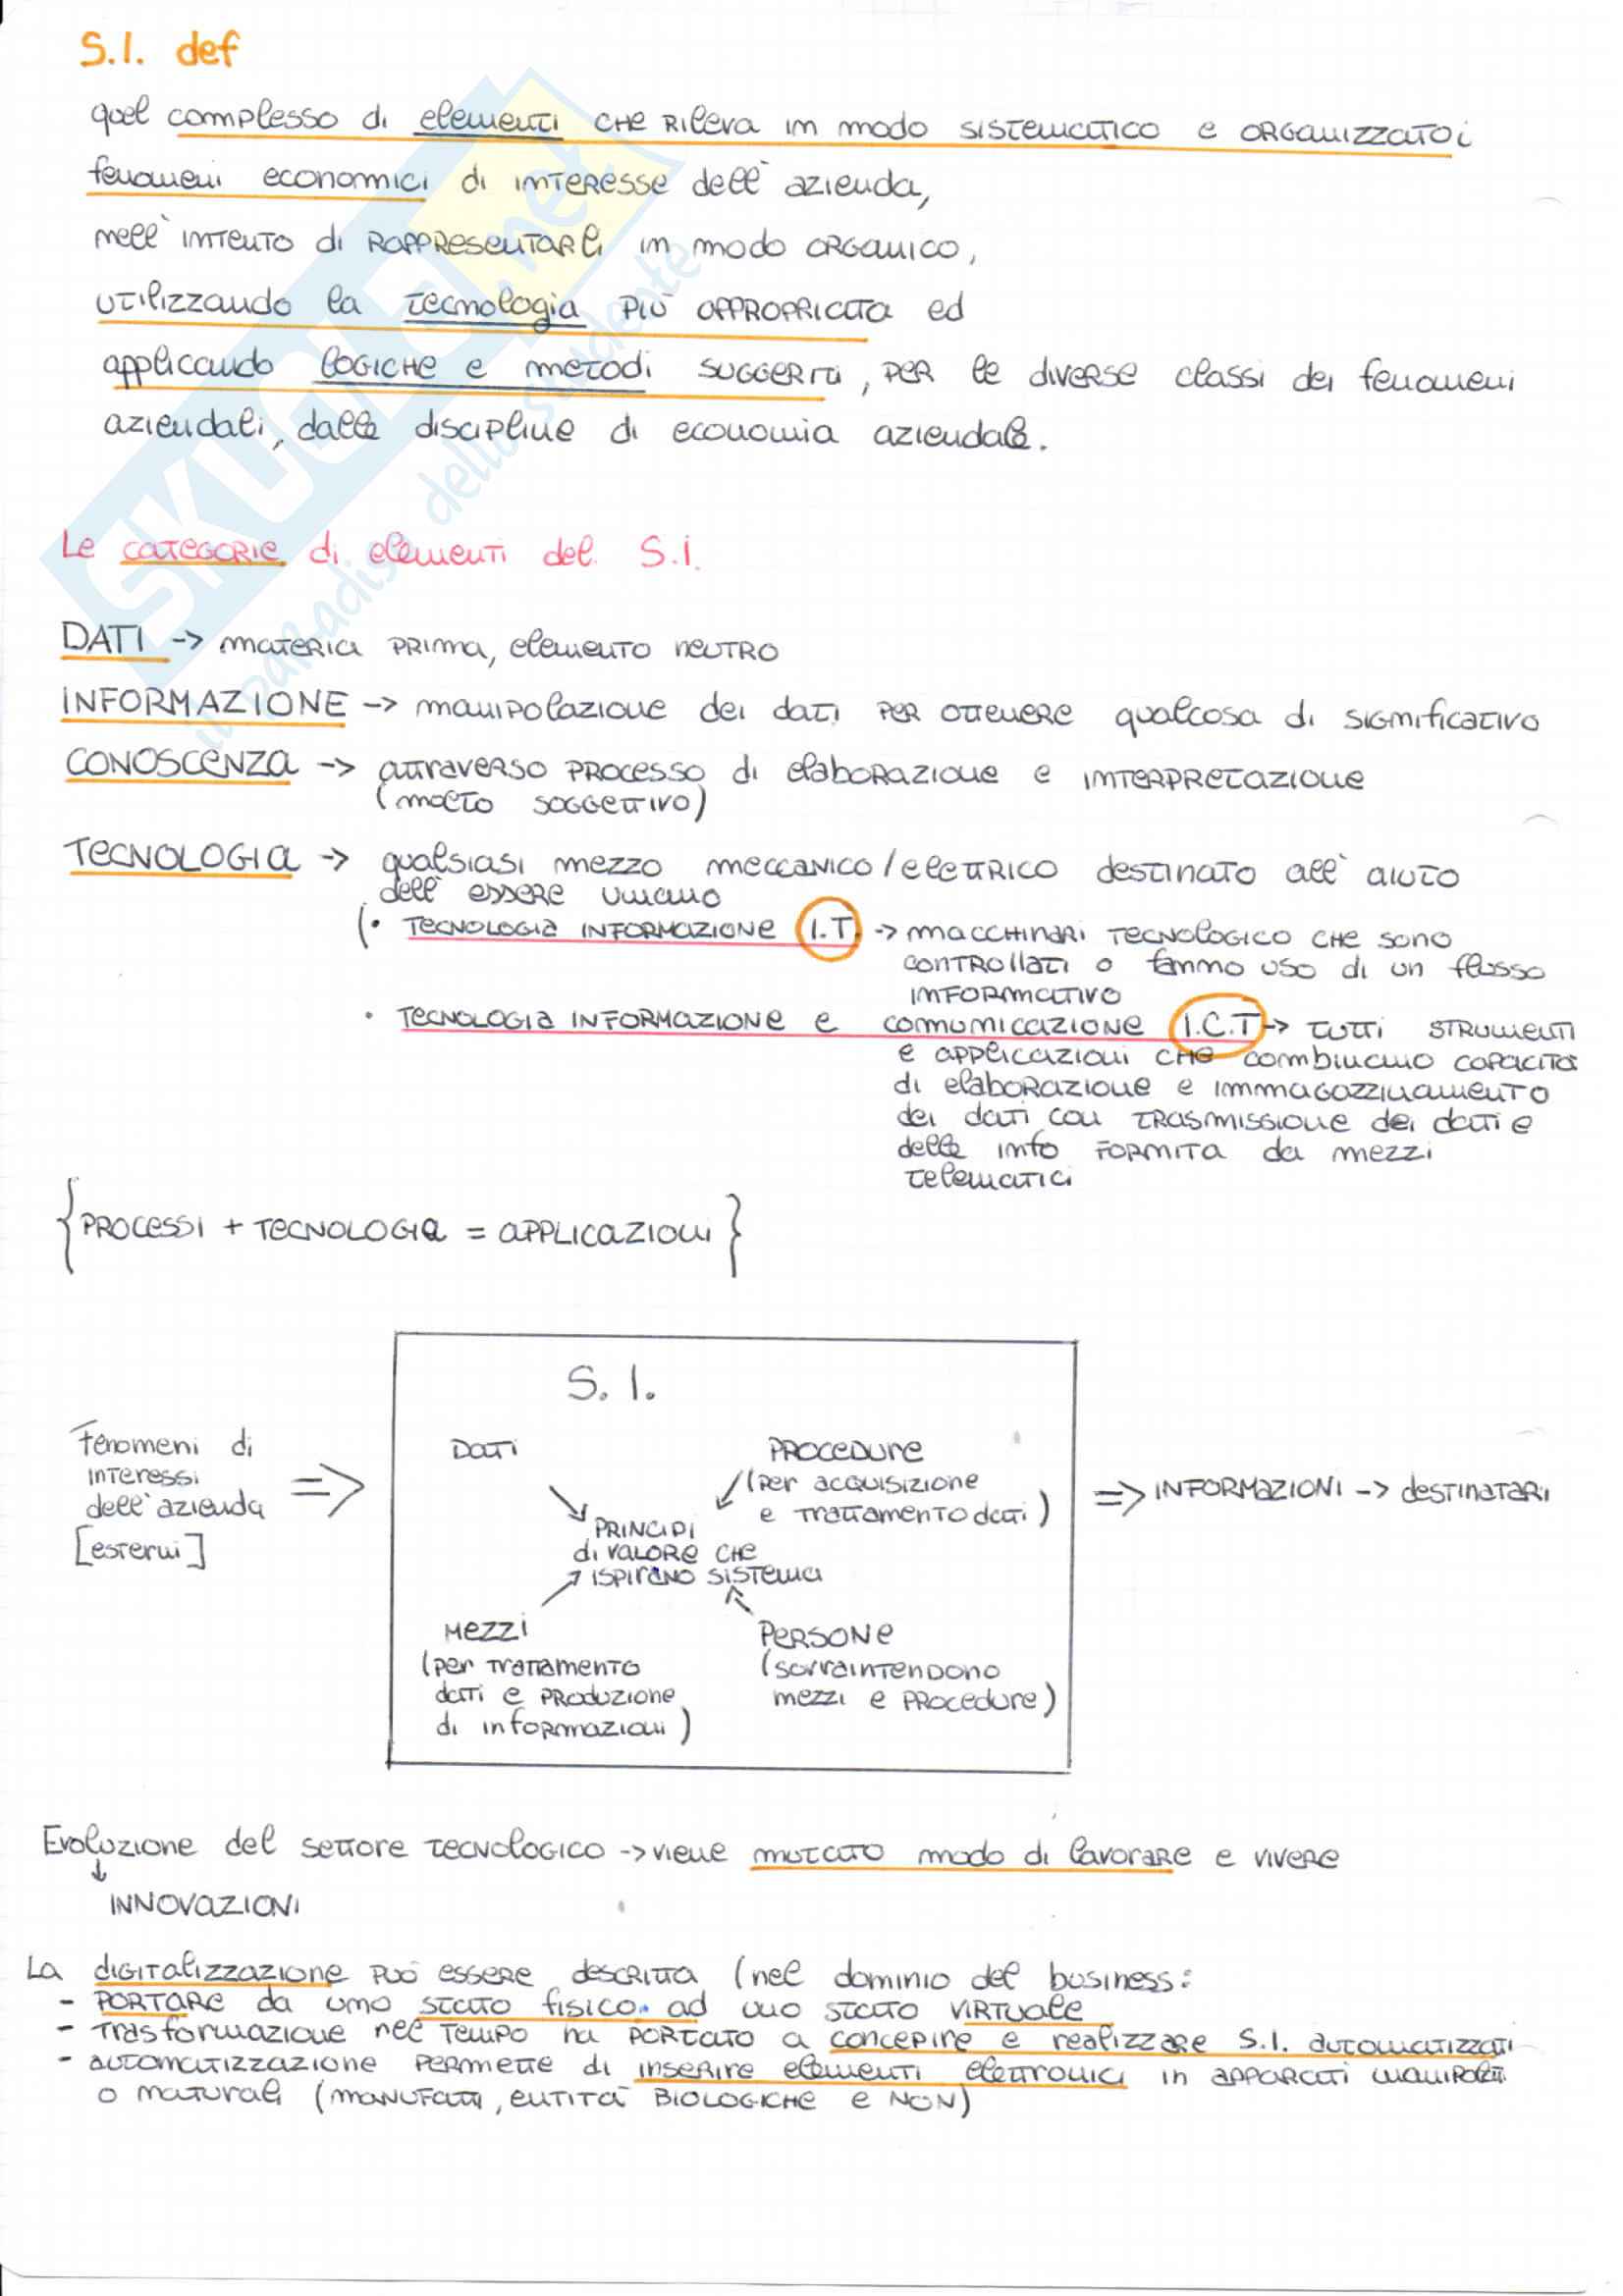 S.I. def
quel complesso di elementi che rileva in modo sistematico e organizzato i
fenomeni economici di interesse dell'azienda,
nell'intento di rappresentarli in modo organico,
utilizzando la tecnologia più appropriata ed
applicando logiche e metodi suggeriti, per le diverse classi dei fenomeni
aziendali, dalle discipline di economia aziendale.
Le categorie di elementi del S.I.
DATI -> materia prima, elemento neutro
INFORMAZIONE -> manipolazione dei dati per ottenere qualcosa di significativo
CONOSCENZA -> attraverso processo di elaborazione e interpretazione
(molto soggettivo)
TECNOLOGIA -> qualsiasi mezzo meccanico/elettrico destinato all'aiuto
dell'essere umano
(• TECNOLOGIA INFORMAZIONE I.T. -> macchinari tecnologico che sono
controllati o fanno uso di un flusso
informativo
• TECNOLOGIA INFORMAZIONE e comunicazione I.C.T -> tutti strumenti
e applicazioni che combinano capacità
di elaborazione e immagazzinamento
dei dati con trasmissione dei dati e
delle info fornita da mezzi
telematici
{PROCESSI + TECNOLOGIA = APPLICAZIONI}
S.I.
Fenomeni di
interessi
dell'azienda
[esterni]
=>
Dati
PROCEDURE
(per acquisizione
e trattamento dati)
PRINCIPI
di valore che
ispirano sistema
Mezzi
(per trattamento
dati e produzione
di informazioni)
Persone
(sovraintendono
mezzi e procedure)
=> INFORMAZIONI -> destinatari
Evoluzione del settore tecnologico -> viene mutato modo di lavorare e vivere
↓
INNOVAZIONI
La digitalizzazione può essere descritta (nel dominio del business:
- PORTARE da uno stato fisico ad uno stato virtuale
- trasformazione nel tempo ha portato a concepire e realizzare S.I. automatizzati
- automatizzazione permette di inserire elementi elettronici in apparati
o naturali (manufatti, entità biologiche e non)
SKUOLA.net
il paradiso dello studente